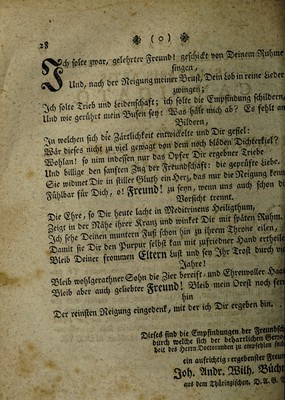 28 ❉ ( o ) ❉
Ich solte zwar, gelehrter Freund! geschikt von Deinem Ruhme
singen,
Und, nach der Neigung meiner Brust, Dein Lob in reine Lieder
zwingen;
Ich solte Trieb und Leidenschaft; ich solte die Empfindung schildern,
Und wie gerührt mein Busen sey! Was hält mich ab? Es fehlt an
Bildern,
In welchen sich die Zärtlichkeit entwickelte und Dir gefiel:
Wär dieses nicht zu viel gewagt von dem noch blöden Dichterkiel?
Wohlan! so nim indessen nur das Opfer Dir ergebner Triebe
Und billige den sanften Zug der Freundschaft: die geprüfte Liebe.
Sie widmet Dir in stiller Glut ein Herz, das nur die Neigung kennt
Fühlbar für Dich, o! Freund! zu seyn, wenn uns auch schon die
Vorsicht trennt.
Die Ehre, so Dir heute lacht in Meditrinens Heiligthum,
Zeigt in der Nähe ihrer Kranz und winket Dir mit späten Ruhm.
Ich sehe Deinen muntern Fuß schon hin zu ihrem Throne eilen,
Damit sie Dir den Purpur selbst kan mit zufriedner Hand ertheilen
Bleib Deiner frommen Eltern Lust und sey Ihr Trost durch
Jahre!
Bleib wohlgerathner Sohn die Zier bereift- und Ehrenvoller Haare
Bleib aber auch geliebter Freund! Bleib mein Orest noch
hin
Der reinsten Neigung eingedenk, mit der ich Dir ergeben bin.
Dieses sind die Empfindungen der Freundschaft
durch welche sich der beharrlichen
heit des Herrn Doctoranden zu empfehlen
ein aufrichtig-ergebenster Freund
Joh. Andr. Wilh. Büchn
aus dem Thüringischen. D. A. G.